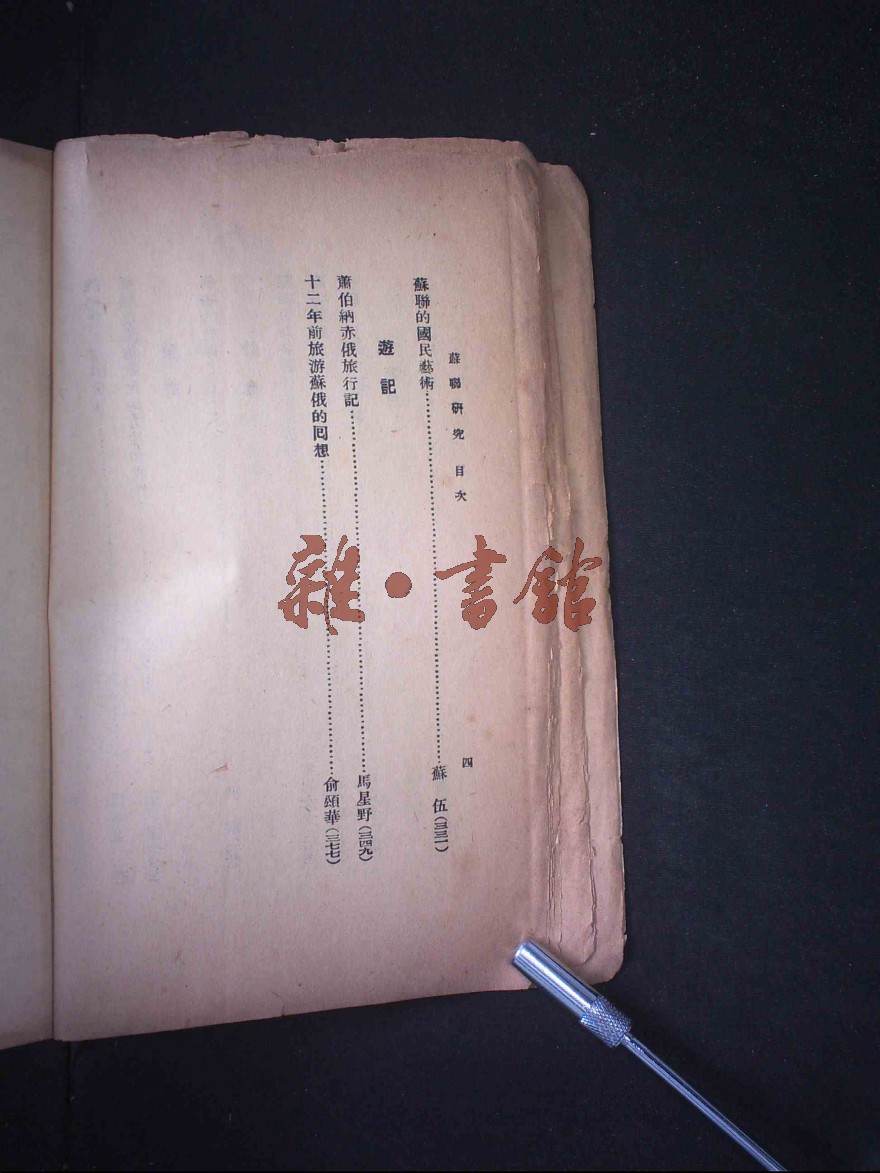 蘇聯研究 目次
四
蘇聯的國民藝術……………………蘇 伍(三三一)
遊記
蕭伯納赤俄旅行記……………………馬星野(三四九)
十二年前旅游蘇俄的囘想……………………俞頌華(三七七)
雜·書館